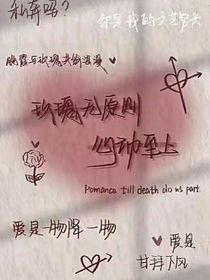 私奔吗?
你是我的文艺宫夹
晚霞与玫瑰共倾浪漫
玫瑰无原则
心动至上
Pomance till death do us part.
爱是一物降一物
爱是
甘拜下风